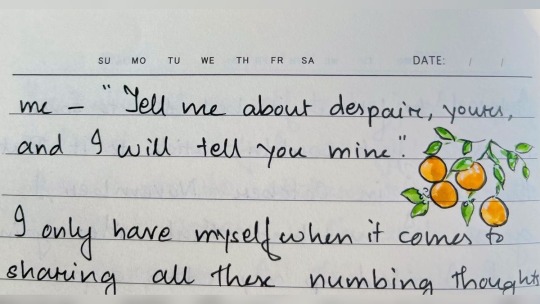 SU MO TU WE TH FR SA DATE: / /
me – "Tell me about despair, yours,
and I will tell you mine".
I only have myself when it comes to
sharing all these numbing thoughts